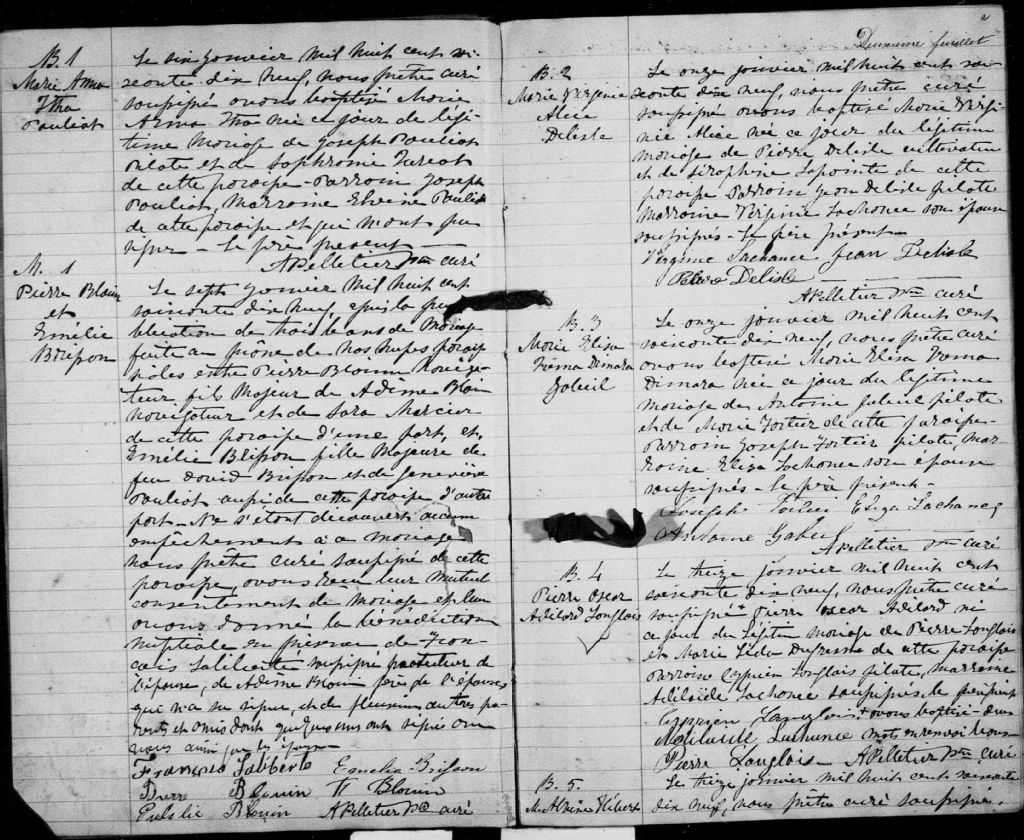 B. 1
Marie Anna
Itha
Pouliot
Le six janvier mil huit cent soi-
xante dix neuf, nous prêtre curé
soussigné avons baptisé Marie
Anna Itha née ce jour de légi-
time mariage de Joseph Pouliot
pilote et de Sophronie Turcot
de cette paroisse - Parrain Joseph
Pouliot, Marraine Elvine Pouliot
de cette paroisse et qui n'ont pu
signer - Le père présent
A Pelletier Ptre curé
M. 1
Pierre Blouin
et
Emélie
Brisson
Le sept janvier mil huit cent
soixante dix neuf, après la pu-
blication de trois bans de mariage
faite au prône de nos messes parois-
siales entre Pierre Blouin naviga-
teur fils majeur de Adème Blouin
navigateur et de Sara Mercier
de cette paroisse d'une part, et,
Emélie Brisson fille majeure de
feu David Brisson et de Geneviève
Pouliot aussi de cette paroisse d'autre
part - Ne s'étant découvert aucun
empêchement à ce mariage
nous prêtre curé soussigné de cette
paroisse, avons reçu leur mutuel
consentement de mariage et leur
avons donné la bénédiction
nuptiale en présence de Fran-
çois Laliberté soussigné
l'épouse, de Adème Blouin père de l'époux
qui n'a su signer, et de plusieurs autres pa-
rents et amis dont quelques uns ont signé avec
nous ainsi que les époux
François Laliberté Emelie Brisson
Pierre Blouin H Blouin
Blouin A Pelletier Ptre curé
2
Deuxième feuillet
B. 2
Marie Virginie
Alice
Delisle
Le onze janvier mil huit cent soi-
xante dix neuf, nous prêtre curé
soussigné avons baptisé Marie Virgi-
nie Alice née ce jour du légitime
mariage de Pierre Delisle cultivateur
et de Séraphine Lapointe de cette
paroisse Parrain Jean Delisle pilote
Marraine Virginie Lachance son épouse
soussignés - Le père présent
Virginie Lachance Jean Delisle
Delisle
A Pelletier Ptre curé
B. 3
Marie Elisa
Iréma Dimara
Goleuil
Le onze janvier mil huit cent
soixante dix neuf, nous prêtre curé
avons baptisé Marie Elisa Iréma
Dimara née ce jour du légitime
mariage de Antoine Gobeil pilote
et de Marie Fortier de cette paroisse -
Parrain Joseph Fortier pilote, Mar-
raine Eliza Lachance son épouse
soussignés - Le père présent -
Joseph Fortier Eliza Lachance
Antoine Gobeil
A Pelletier Ptre curé
B. 4
Pierre Oscar
Adélard Langlois
Le treize janvier mil huit cent
soixante dix neuf, nous prêtre curé
soussigné + Pierre Oscar Adélard né
ce jour du légitime mariage de Pierre Langlois
et Marie Léda Dufresne de cette paroisse
parrain Cyprien Langlois pilote, marraine
Adélaïde Lachance soussignés, le père présent
Cyprien Langlois + avons baptisé - deux
Adélaide Lachance mots en renvoi bons
Pierre Langlois A Pelletier Ptre curé
B. 5.
M. Hébert
Le treize janvier mil huit cent soixante
dix neuf, nous prêtre curé soussigné,